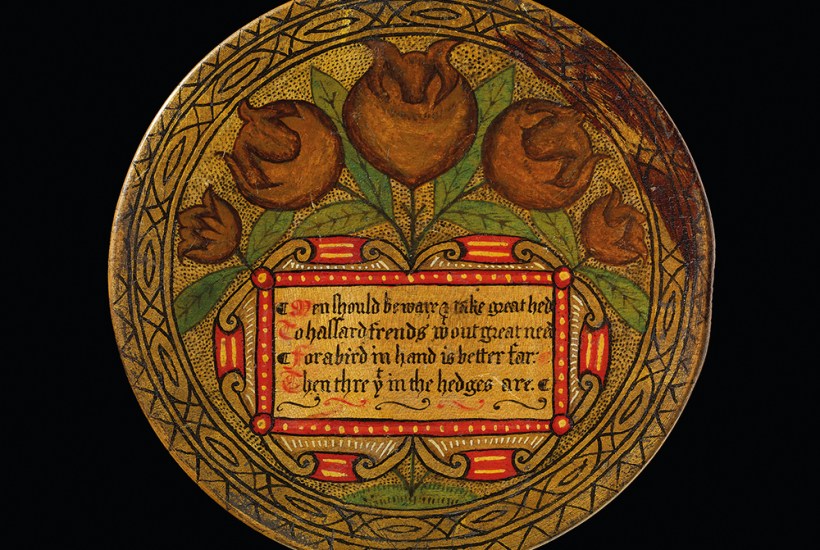 Men should beware & take great hed
To hassard frends wout great ned
For a bird in hand is better far:
Then thre yt in the hedges are.